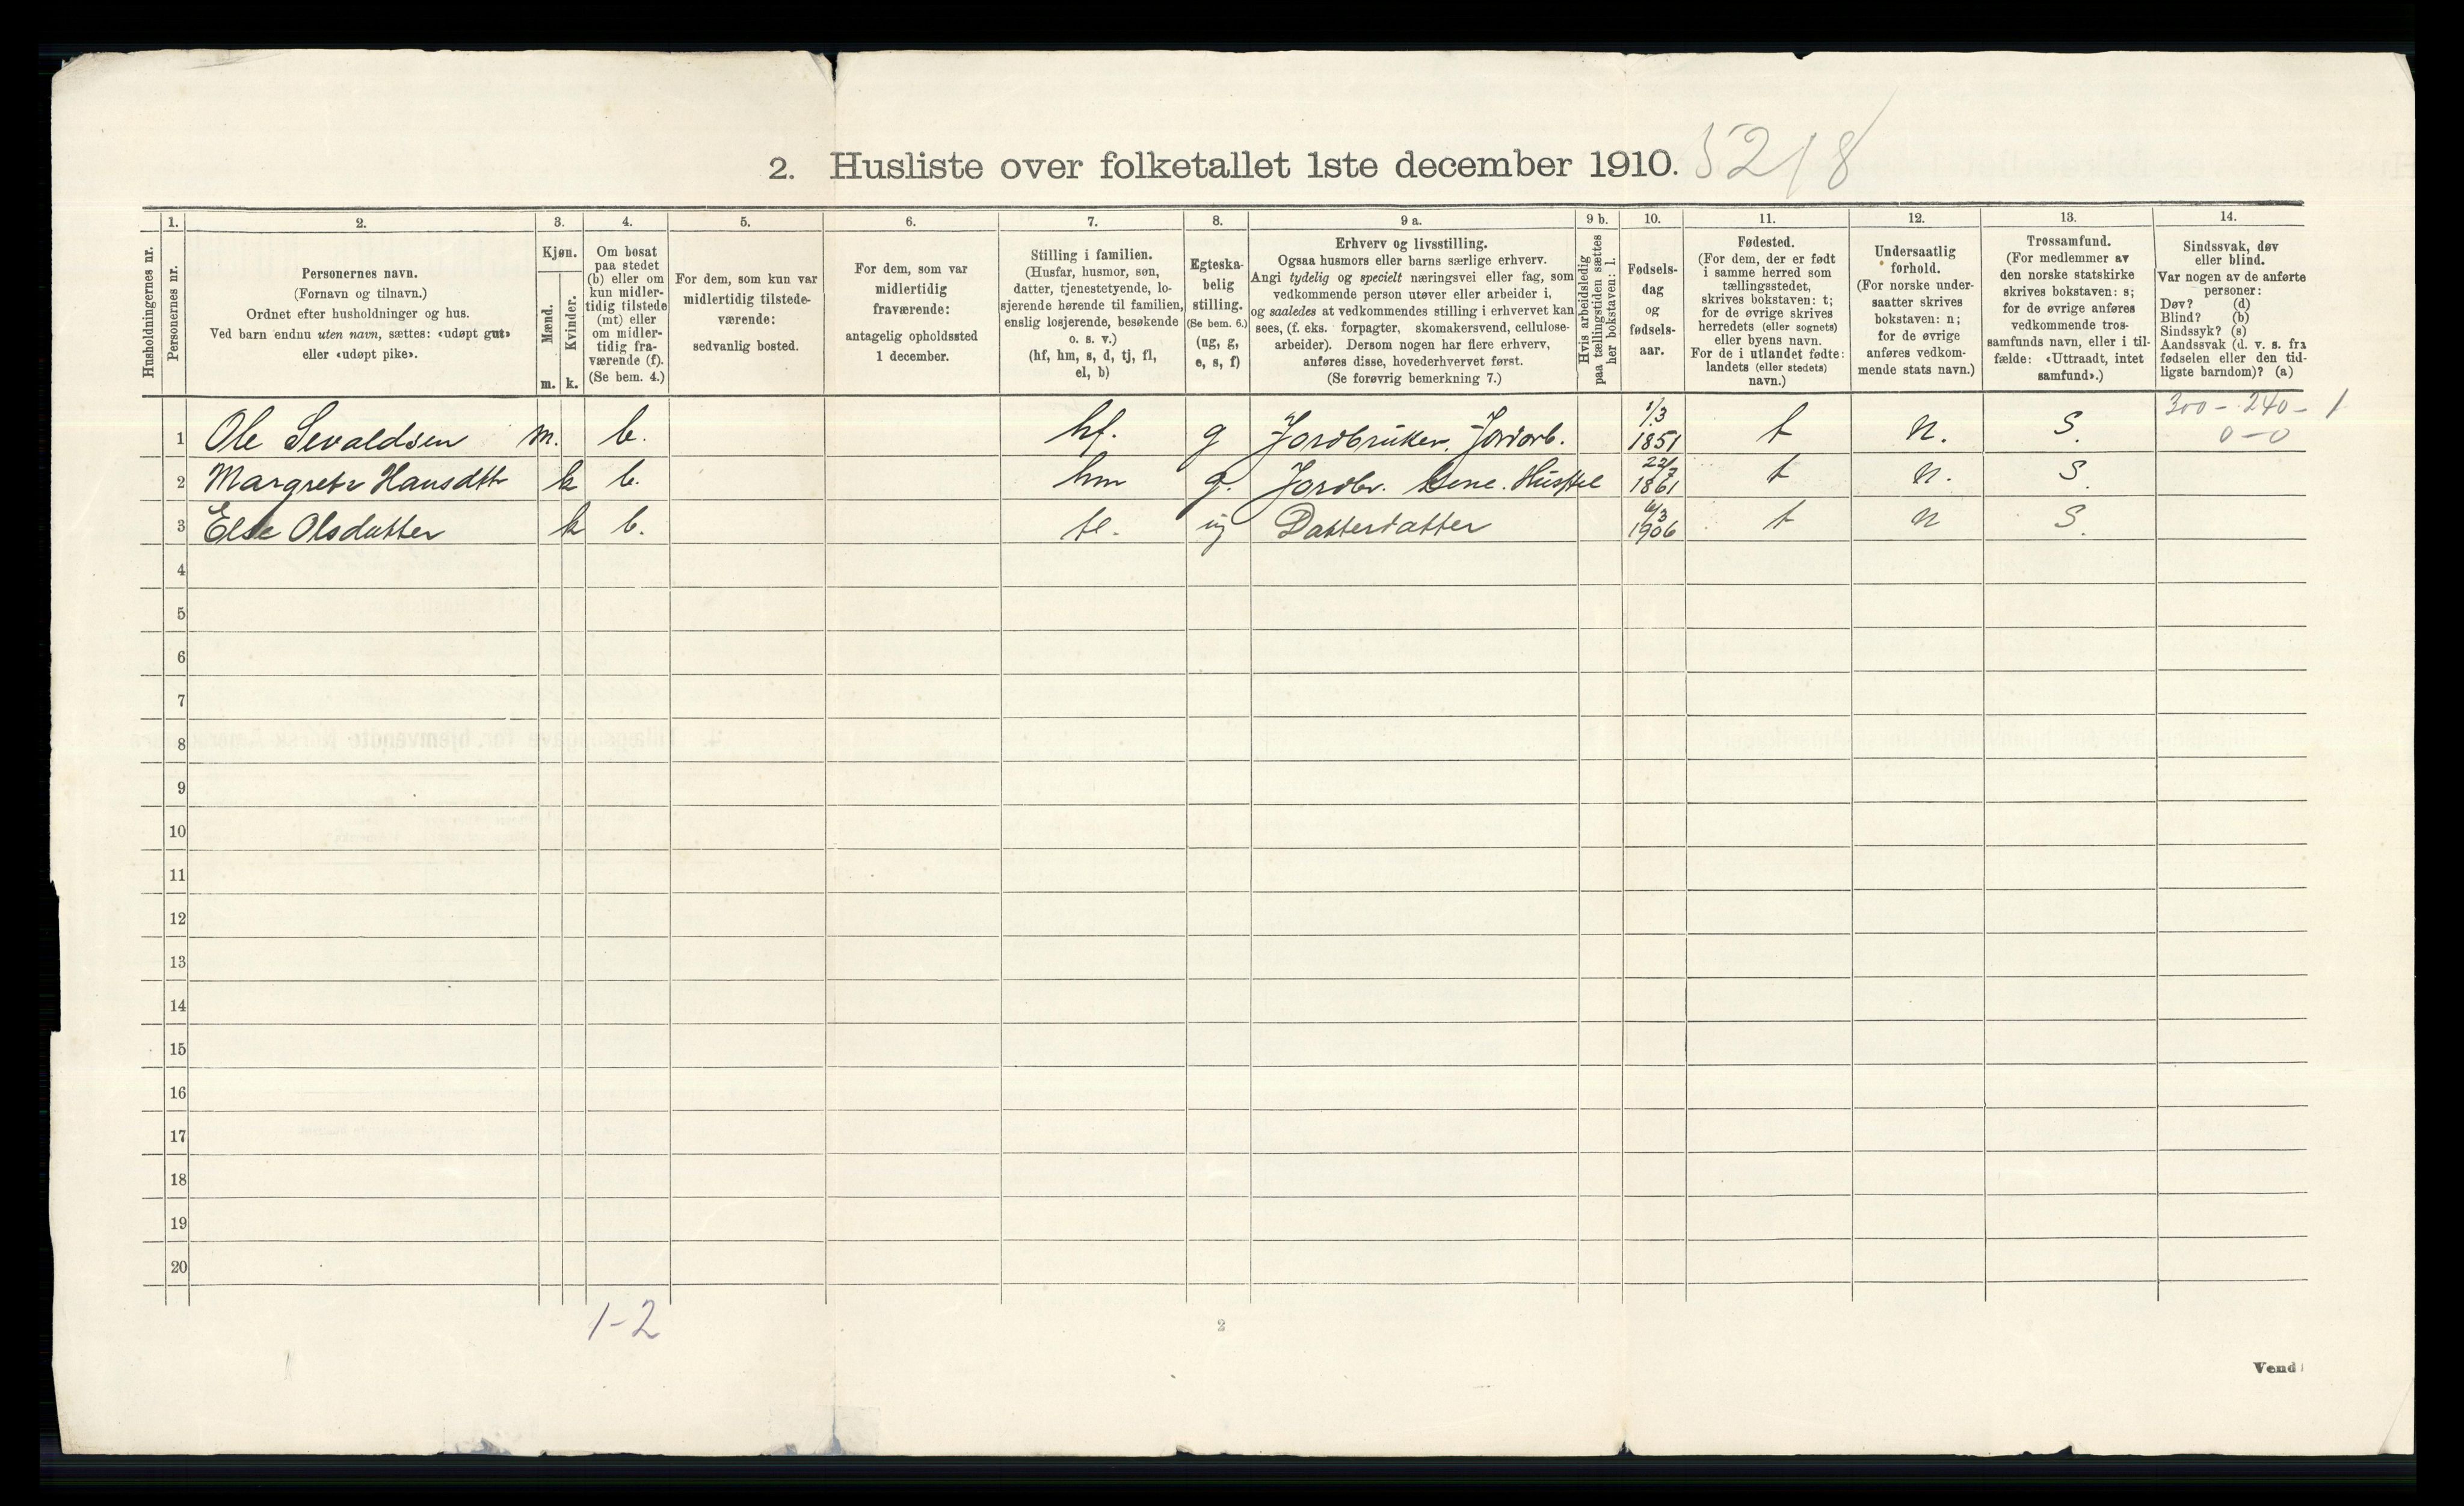 2. Husliste over folketallet 1ste december 1910. 5218
Husholdningernes nr.
1.
Personernes nr.
2.
Personernes navn.
(Fornavn og tilnavn.)
Ordnet efter husholdninger og hus.
Ved barn endnu uten navn, sættes: «udøpt gut»
eller «udøpt pike».
3.
Kjøn.
Mænd.
Kvinder.
m. k.
4.
Om bosat
paa stedet
(b) eller om
kun midler-
tidig tilstede
(mt) eller
om midler-
tidig fra-
værende (f).
(Se bem. 4.)
5.
For dem, som kun var
midlertidig tilstede-
værende:
sedvanlig bosted.
6.
For dem, som var
midlertidig
fraværende:
antagelig opholdssted
1 december.
7.
Stilling i familien.
(Husfar, husmor, søn,
datter, tjenestetyende, lo-
sjerende hørende til familien,
enslig losjerende, besøkende
o. s. v.)
(hf, hm, s, d, tj, fl,
el, b)
8.
Egteska-
belig
stilling.
(Se bem. 6.)
(ug, g,
e, s, f)
9 a.
Erhverv og livsstilling.
Ogsaa husmors eller barns særlige erhverv.
Angi tydelig og specielt næringsvei eller fag, som
vedkommende person utøver eller arbeider i,
og saaledes at vedkommendes stilling i erhvervet kan
sees, (f. eks. forpagter, skomakersvend, cellulose-
arbeider). Dersom nogen har flere erhverv,
anføres disse, hovederhvervet først.
(Se forøvrig bemerkning 7.)
9 b.
Hvis arbeidsledig
paa tællingstiden sættes
her bokstaven: l.
10.
Fødsels-
dag
og
fødsels-
aar.
11.
Fødested.
(For dem, der er født
i samme herred som
tællingsstedet,
skrives bokstaven: t;
for de øvrige skrives
herredets (eller sognets)
eller byens navn.
For de i utlandet fødte:
landets (eller stedets)
navn.)
12.
Undersaatlig
forhold.
(For norske under-
saatter skrives
bokstaven: n;
for de øvrige
anføres vedkom-
mende stats navn.)
13.
Trossamfund.
(For medlemmer av
den norske statskirke
skrives bokstaven: s;
for de øvrige anføres
vedkommende tros-
samfunds navn, eller i til-
fælde: «Uttraadt, intet
samfund».)
14.
Sindssvak, døv
eller blind.
Var nogen av de anførte
personer:
Døv? (d)
Blind? (b)
Sindssyk? (s)
Aandssvak (d. v. s. fra
fødselen eller den tid-
ligste barndom)? (a)
300 - 240 - 1
0 - 0
1 Ole Sevaldsen m. b. hf. g Jordbruker, Jordarb. 1/3 1851 t n. S.
2 Margrete Hansdtr k b. hm g. Jordbr. Husstel 1861 t n. S.
3 Else Olsdatter k b. ug Datterdatter 1906 t n S.
4
5
6
7
8
9
10
11
12
13
14
15
16
17
18
19
20
1-2
2
Vend